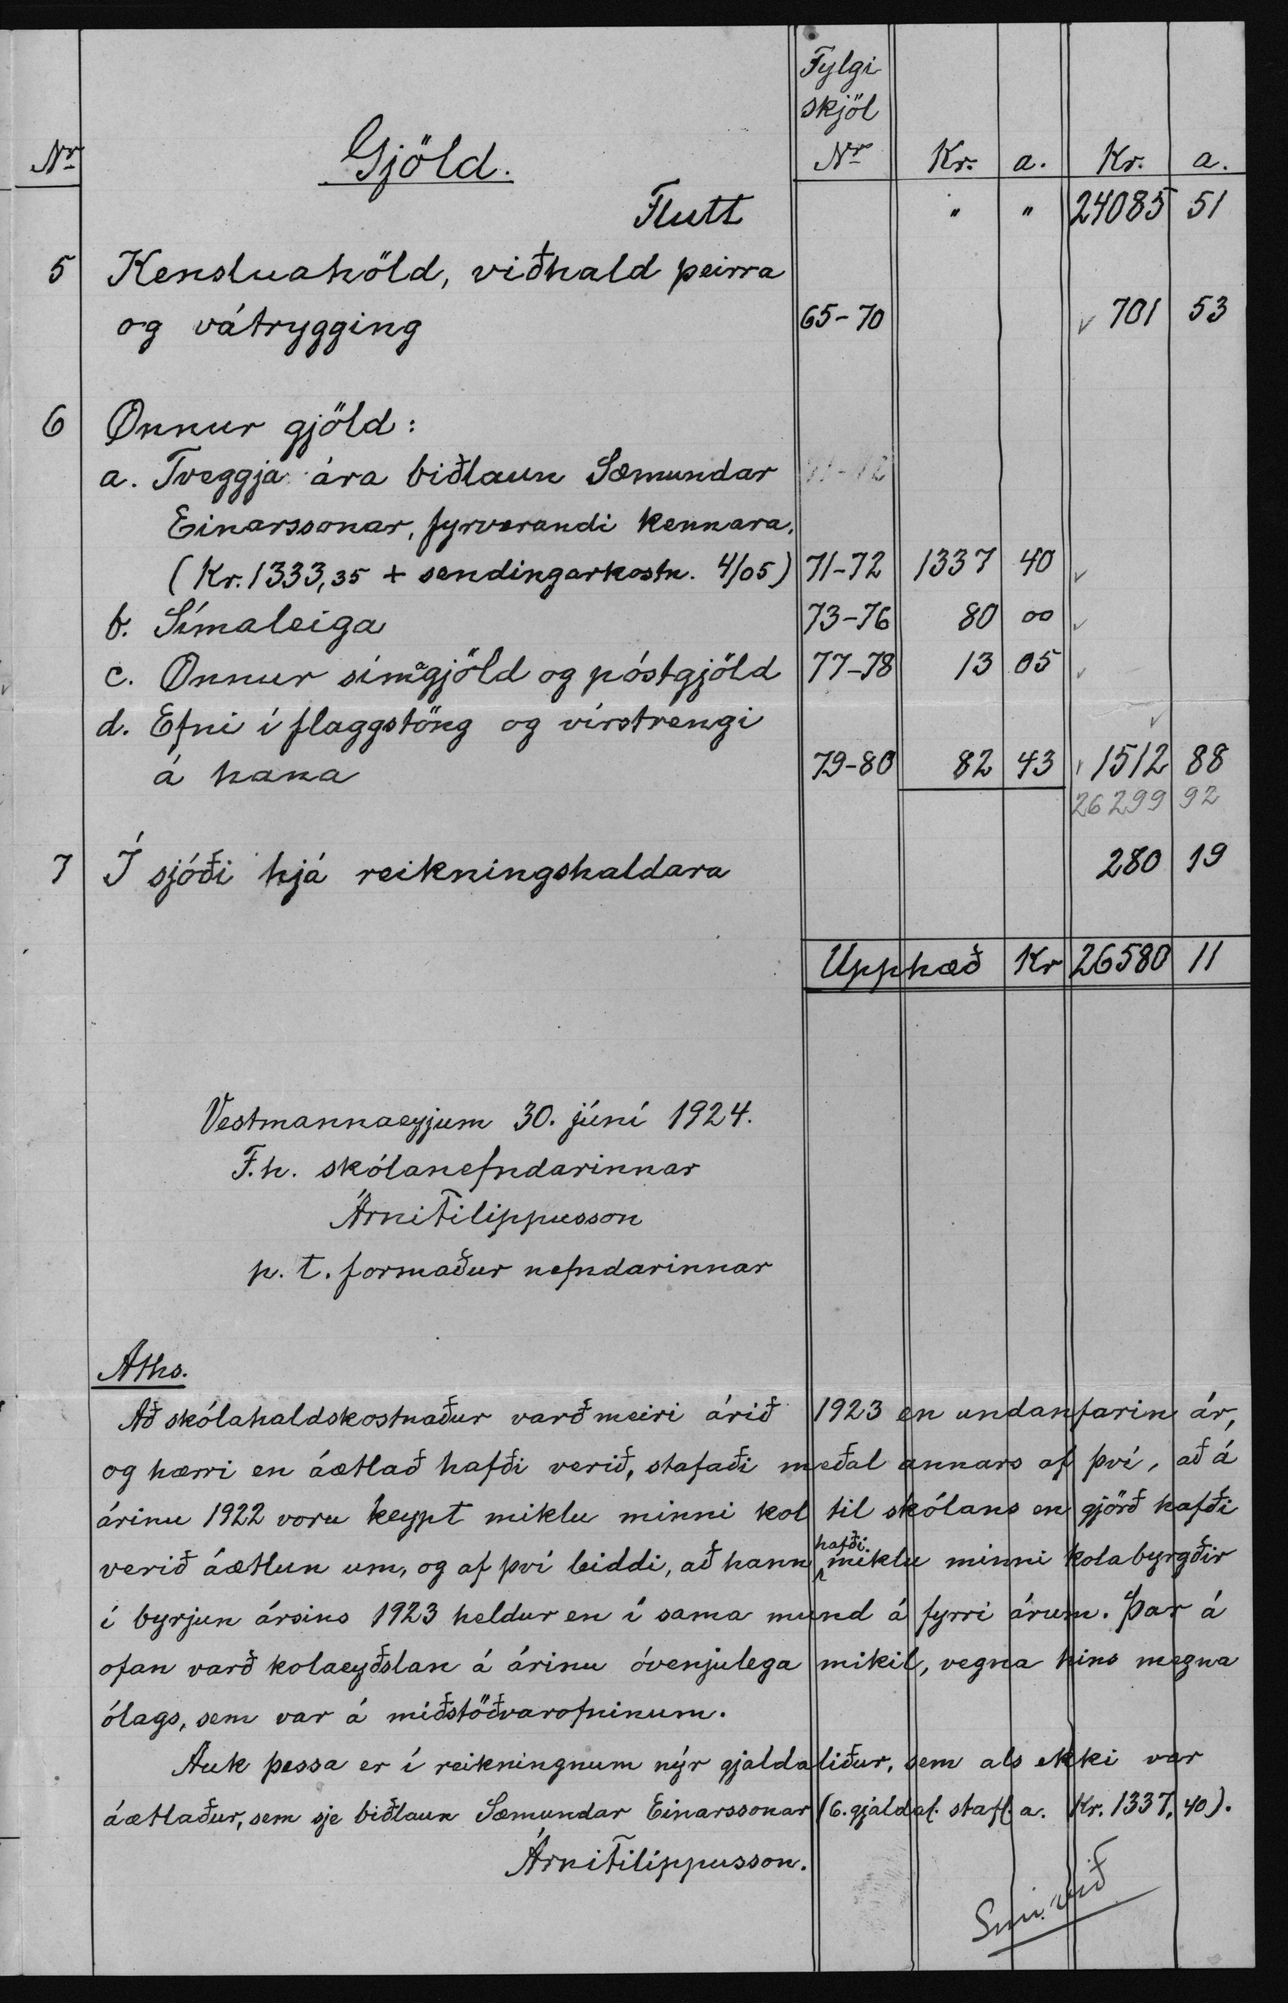 Fylgi
skjöl
Nr Gjöld. Nr Kr. a. Kr. a.
Flutt " " 24085 51
5 Kensluahöld, viðhald þeirra
og vátrygging 65-70 701 53
6 Önnur gjöld:
a. Tveggja ára biðlaun Sæmundar 71-72
Einarssonar, fyrverandi kennara.
(Kr. 1333,35 + sendingarkostn. 4/05) 71-72 1337 40
b. Símaleiga 73-76 80 00
c. Önnur símagjöld og póstgjöld 77-78 13 05
d. Efni í flaggstöng og vírstrengi
á hana 79-80 82 43 1512 88
26299 92
7 Í sjóði hjá reikningshaldara 280 19
Upphæð Kr 26580 11
Vestmannaeyjum 30. júní 1924.
F.h. skólanefndarinnar
Árni Filippusson
p. t. formaður nefndarinnar
Aths.
Að skólahaldskostnaður varð meiri árið 1923 en undanfarin ár,
og hærri en áætlað hafði verið, stafaði meðal annars af því, að á
árinu 1922 voru keypt miklu minni kol til skólans en gjörð hafði
verið áætlun um, og af því leiddi, að hann hafði miklu minni kolabyrgðir
í byrjun ársins 1923 heldur en í sama mund á fyrri árum. Þar á
ofan varð kolaeyðslan á árinu óvenjulega mikil, vegna hins megna
ólags, sem var á miðstöðvarofninum.
Auk þessa er í reikningnum nýr gjaldaliður, sem als ekki var
áætlaður, sem sje biðlaun Sæmundar Einarssonar (6. gjaldal. stafl. a. Kr. 1337,40).
Árni Filippusson.
við